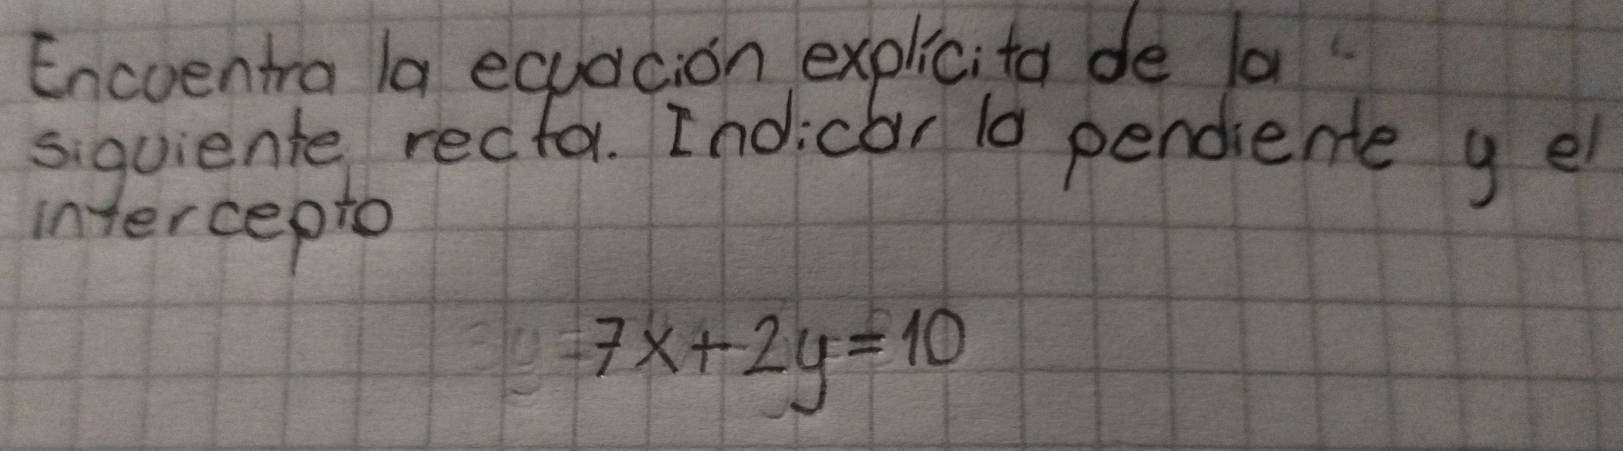 Encuentra la ecuación explícita de la
siguiente recta. Indicar la pendiente y el
intercepto
7x+2y=10